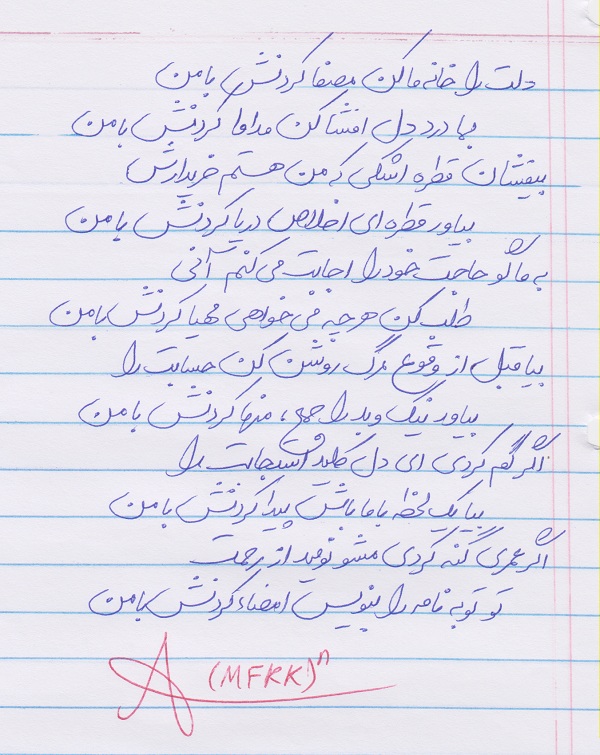 دلت را خانه ما کن مصفا کردنش با من
بما درد دل افشا کن مداوا کردنش با من
بیفشان قطره اشکی که من هستم خریدارش
بیاور قطره ای اخلاص دریا کردنش با من
به ما گو حاجت خود را اجابت می کنم آنی
طلب کن هر چه می خواهی مهیا کردنش با من
بیا قبل از وقوع مرگ روشن کن حسابت را
بیاور نیک و بد را جمع، منها کردنش با من
اگر گم کردی ای دل کلید استجابت را
بیا یک لحظه با ما باش پیدا کردنش با من
اگر عمری گنه کردی مشو نومید از رحمت
تو توبه نامه را بنویس امضاء کردنش با من
(MFKK)ⁿ